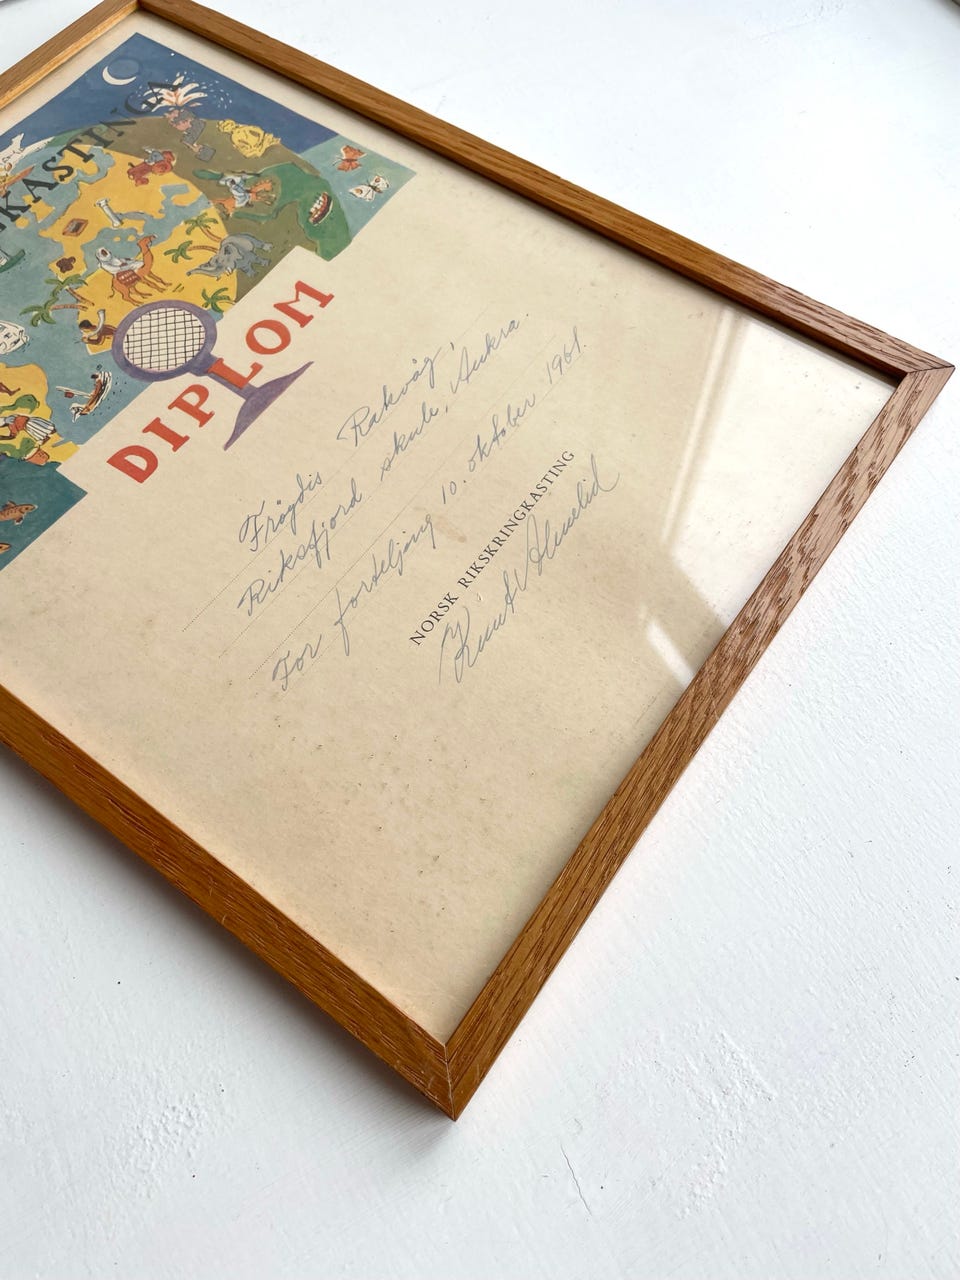 KASTINGA
DIPLOM
Frøydis Rakvåg,
Riksfjord skule, Aukra.
For forteljing 10. oktober 1961.
NORSK RIKSKRINGKASTING